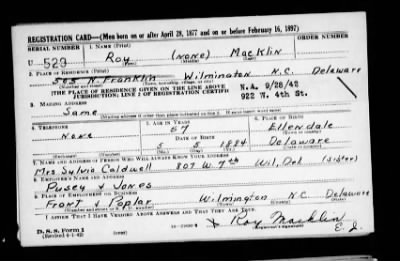 REGISTRATION CARD—(Men born on or after April 28, 1877 and on or before February 16, 1897)
SERIAL NUMBER 1. NAME (Print)
U 529 Roy (NONE) Macklin
(First) (Middle) (Last)
2. PLACE OF RESIDENCE (Print)
505 N. Franklin Wilmington N.C. Delaware
[THE PLACE OF RESIDENCE GIVEN ON THE LINE ABOVE N.A. 9/28/42
JURISDICTION; LINE 2 OF REGISTRATION CERTIFI 922 W. 4th St.
3. MAILING ADDRESS
Same
[Mailing address if other than place indicated on line 2. If same insert word same]
4. TELEPHONE 5. AGE IN YEARS 6. PLACE OF BIRTH
None 57 Ellendale
DATE OF BIRTH
5 5 1884 Delaware
7. NAME AND ADDRESS OF PERSON WHO WILL ALWAYS KNOW YOUR ADDRESS
Mrs Sylvia Caldwell 807 W. 7th Wil, Del (sister)
8. EMPLOYER'S NAME AND ADDRESS
Pusey & Jones
9. PLACE OF EMPLOYMENT OR BUSINESS
Front & Poplar Wilmington N.C. Delaware
I AFFIRM THAT I HAVE VERIFIED ABOVE ANSWERS AND THAT THEY ARE TRUE.
D. S. S. Form 1
(Revised 4-1-42) (over)
x Roy Macklin
(Registrant's signature)
E. J.